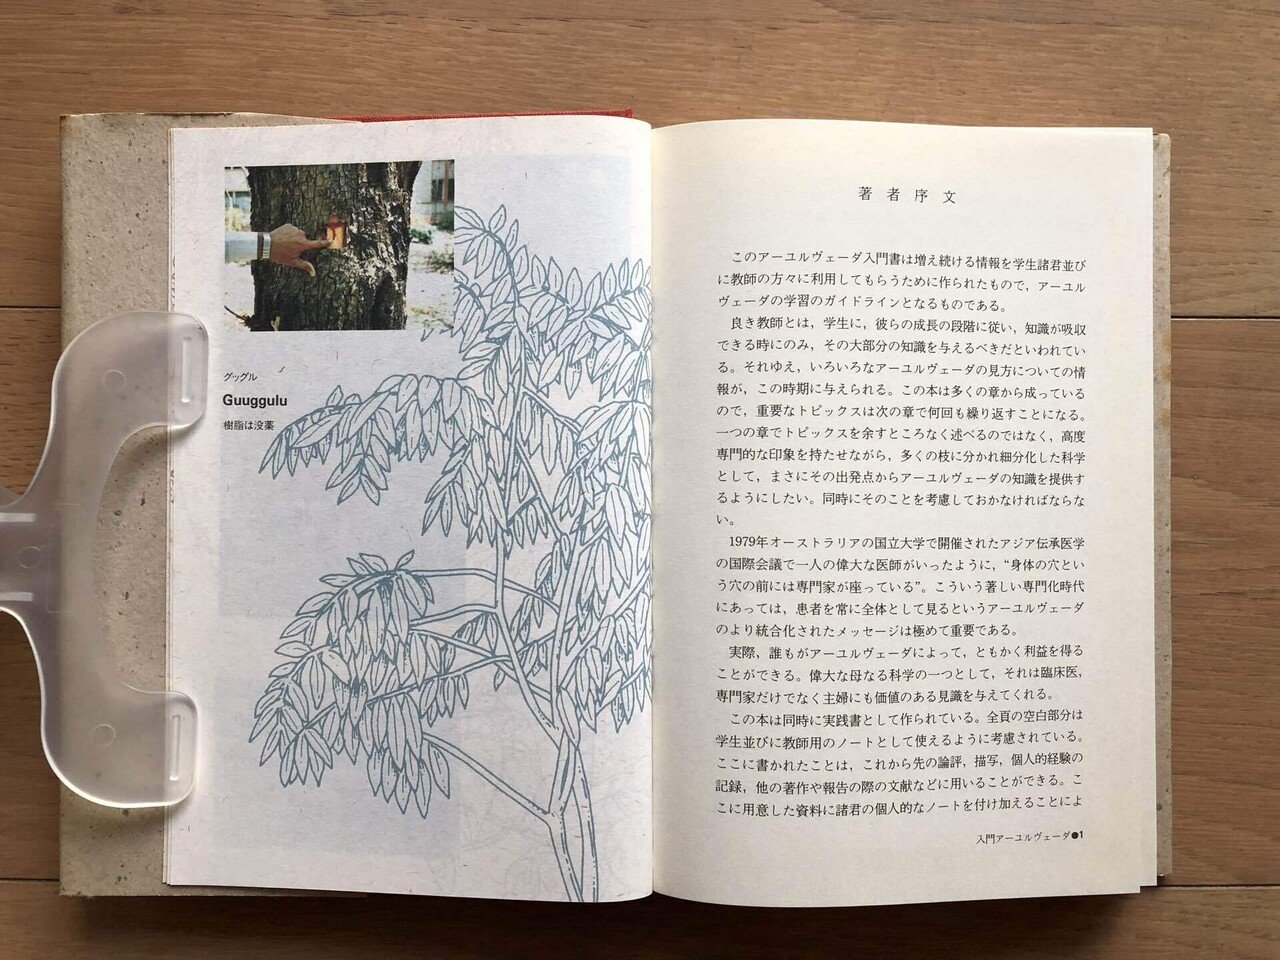 グッグル
Guuggulu
樹脂は没薬
著者序文
このアーユルヴェーダ入門書は増え続ける情報を学生諸君並び
に教師の方々に利用してもらうために作られたもので，アーユル
ヴェーダの学習のガイドラインとなるものである。
良き教師とは，学生に，彼らの成長の段階に従い，知識が吸収
できる時にのみ，その大部分の知識を与えるべきだといわれてい
る。それゆえ，いろいろなアーユルヴェーダの見方についての情
報が，この時期に与えられる。この本は多くの章から成っている
ので，重要なトピックスは次の章で何回も繰り返すことになる。
一つの章でトピックスを余すところなく述べるのではなく，高度
専門的な印象を持たせながら，多くの枝に分かれ細分化した科学
として，まさにその出発点からアーユルヴェーダの知識を提供す
るようにしたい。同時にそのことを考慮しておかなければならな
い。
1979年オーストラリアの国立大学で開催されたアジア伝承医学
の国際会議で一人の偉大な医師がいったように，“身体の穴とい
う穴の前には専門家が座っている”。こういう著しい専門化時代
にあっては，患者を常に全体として見るというアーユルヴェーダ
のより統合化されたメッセージは極めて重要である。
実際，誰もがアーユルヴェーダによって，ともかく利益を得る
ことができる。偉大な母なる科学の一つとして，それは臨床医，
専門家だけでなく主婦にも価値のある見識を与えてくれる。
この本は同時に実践書として作られている。全頁の空白部分は
学生並びに教師用のノートとして使えるように考慮されている。
ここに書かれたことは，これから先の論評，描写，個人的経験の
記録，他の著作や報告の際の文献などに用いることができる。こ
こに用意した資料に諸君の個人的なノートを付け加えることによ
入門アーユルヴェーダ●1